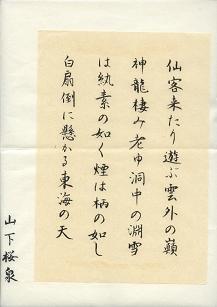 仙客来たり遊ぶ雲外の巓
神龍棲み老ゆ洞中の淵雪
は紈素の如く煙は柄の如し
白扇倒に懸かる東海の天
山下桜泉